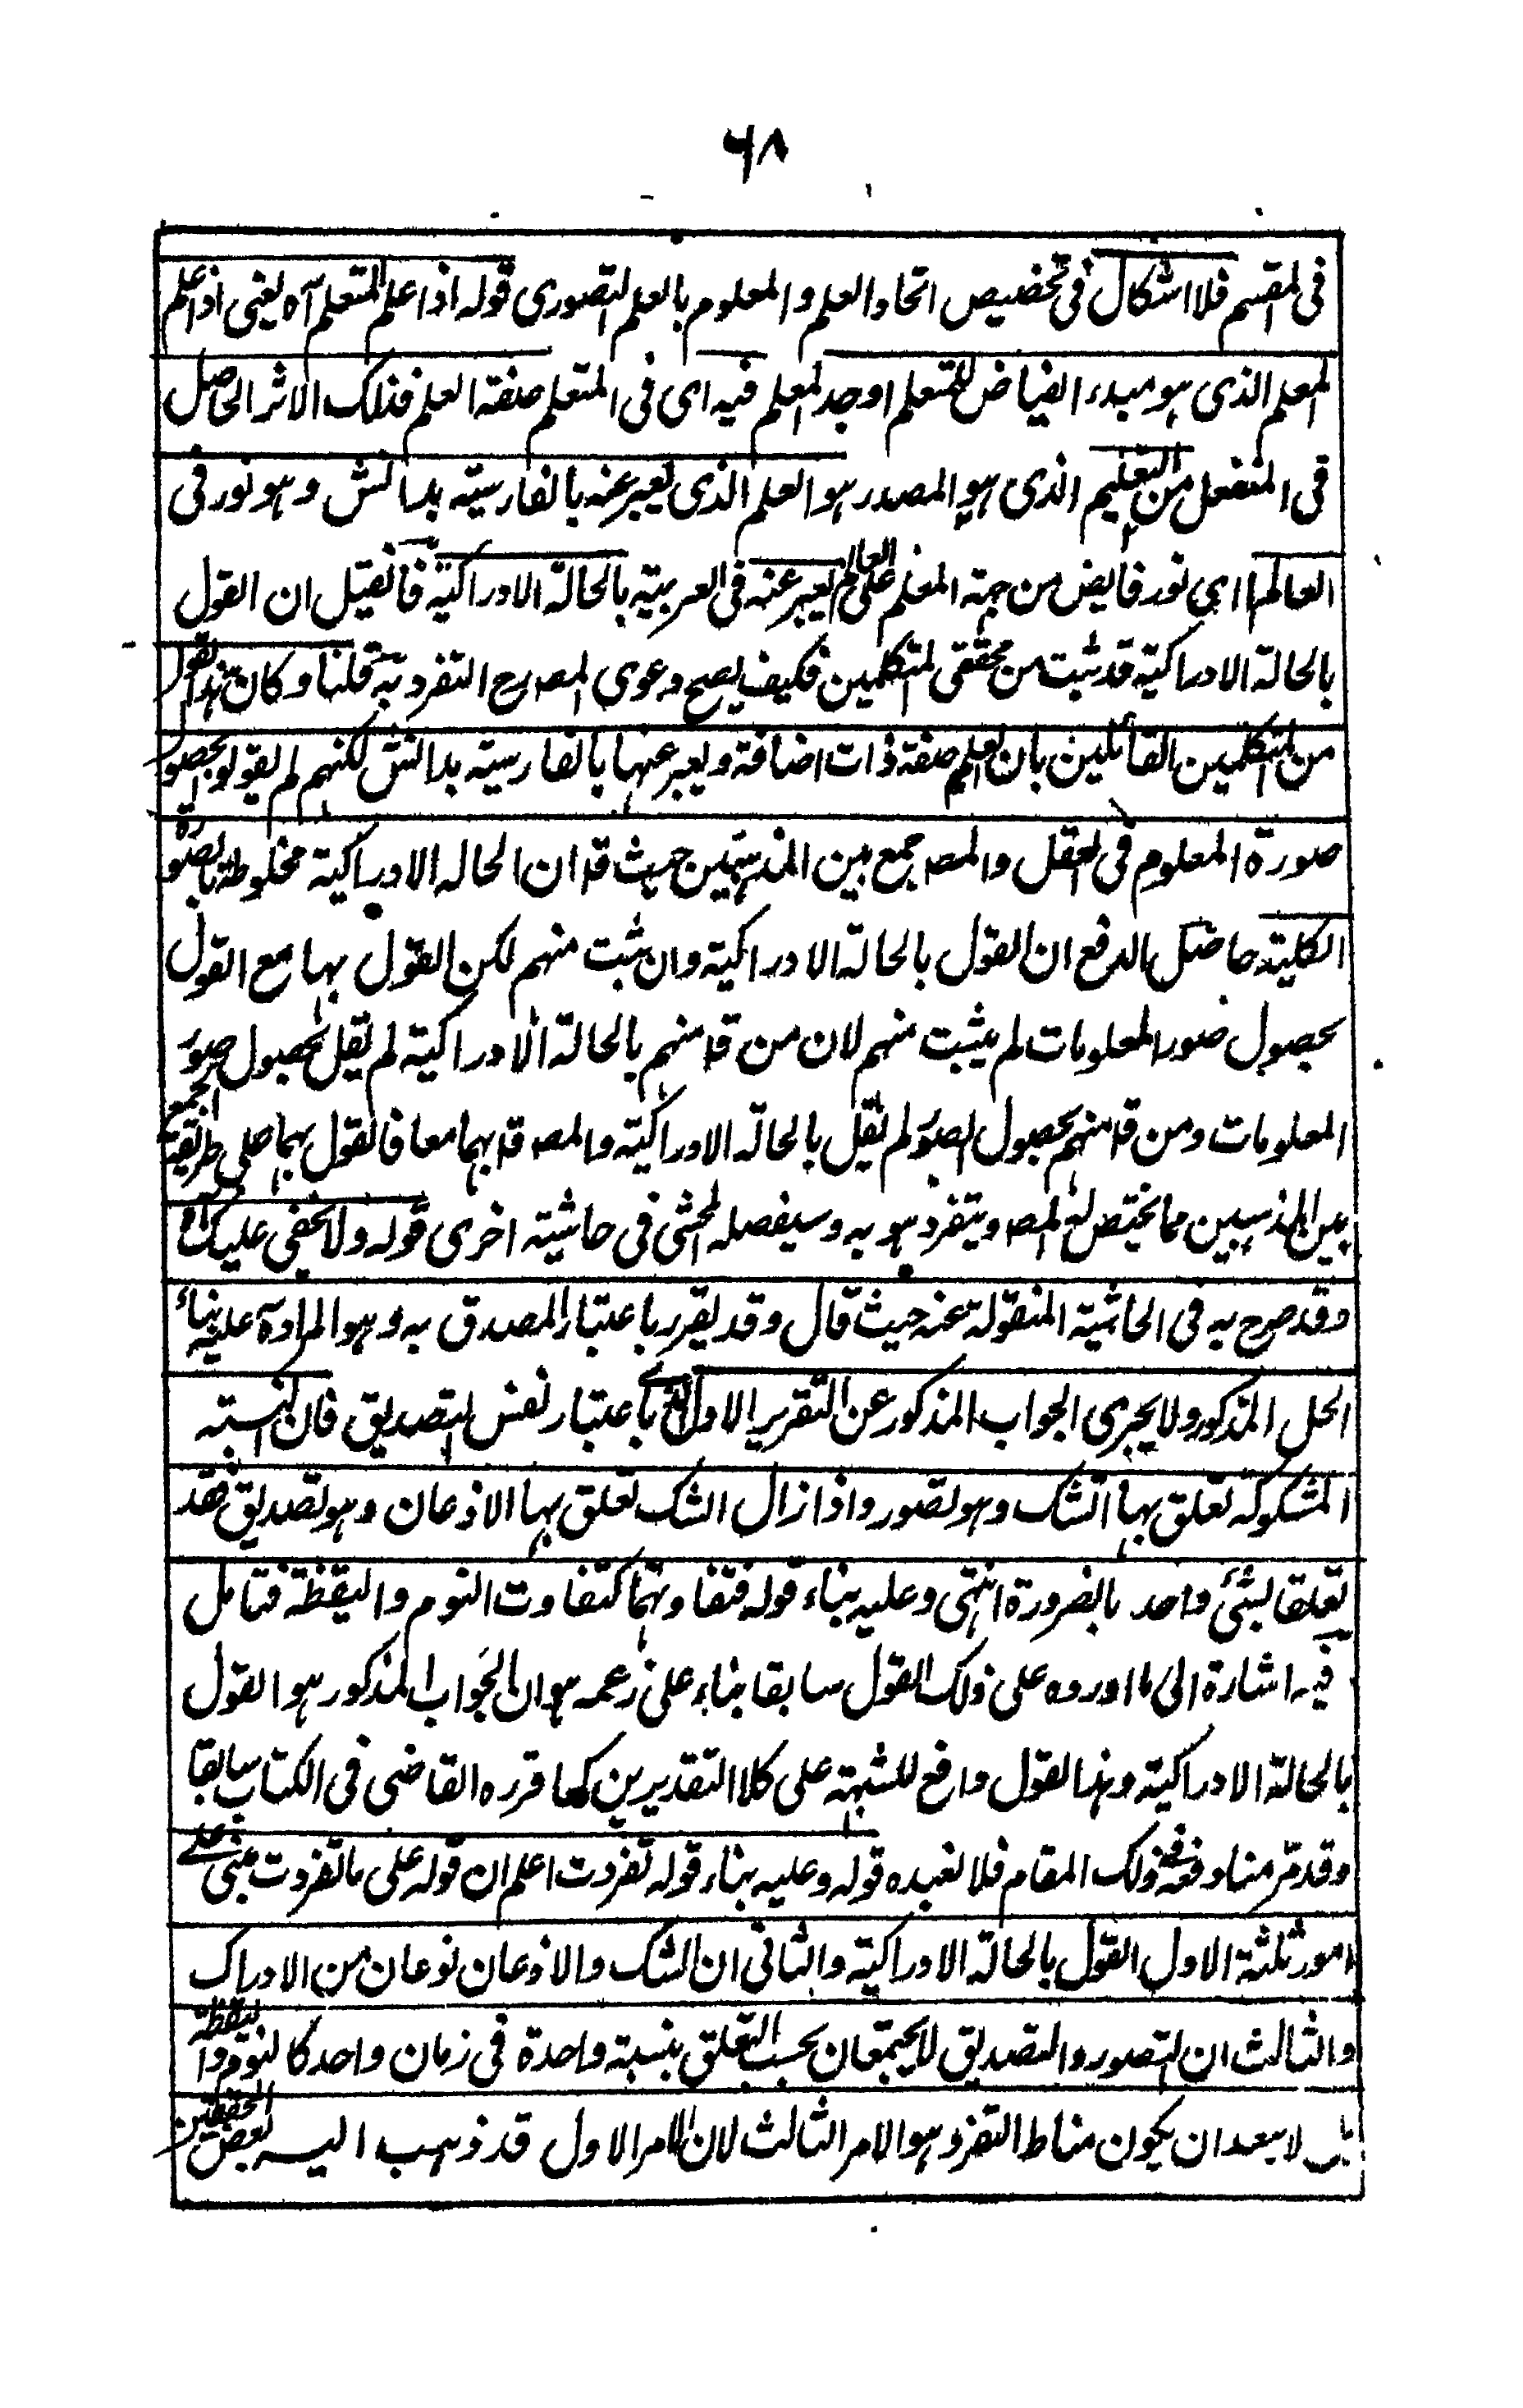 ٦٨
فى المقسم فلا اشكال فى تخصيص اتحاد العلم والمعلوم بالعلم التصورى قوله اذا علم المتعلم آه يعنى اذا علم
المعلم الذى هو مبدء الفياض للمتعلم اوجد المعلم فيه اى فى المتعلم صفة العلم فذلك الاثر الحاصل
فى المنفعل من التعليم الذى هو المصدر هو العلم الذى يعبر عنه بالفارسية بدانش وهو نور فى
العالم اى نور فايض من جهة المعلم على العالم يعبر عنه فى العربية بالحالة الادراكية فان قيل ان القول
بالحالة الادراكية قد ثبت من محققى المتكلمين فكيف يصح دعوى المصـ رح التفرد به قلنا وكان هذا القول
من المتكلمين القائلين بان العلم صفة ذات اضافة ويعبر عنها بالفارسية بدانش لكنهم لم يقولوا بحصول
صورة المعلوم فى العقل والمصـ جمع بين المذهبين حيث قا ان الحاله الادراكية مخلوطة بالصورة
الكلية حاصل الدفع ان القول بالحالة الادراكية وان ثبت منهم لكن القول بها مع القول
بحصول صور المعلومات لم يثبت منهم لان من قا منهم بالحالة الادراكية لم يقل بحصول صور
المعلومات ومن قا منهم بحصول الصور لم يقل بالحالة الادراكية والمصـ قا بهما معا فالقول بهما على طريقة الجمع
بين المذهبين مما يختص به المصـ ويتفرد هو به وسيفصله المحشى فى حاشية اخرى قوله ولا يخفى عليك آه
وقد صرح به فى الحاشية المنقولة عنه حيث قال وقد يقرر باعتبار المصدق به وهو المراد آه عليه بناء
الحل المذكور ولا يجرى الجواب المذكور عن التقرير الاول اى باعتبار نفس التصديق فان النسبة
المشكوكه تعلق بها الشك وهو تصور واذا زال الشك تعلق بها الاذعان وهو تصديق فقد
تعلقا بشئ واحد بالضرورة انتهى وعليه بناء قوله فتفاوتهما كتفاوت النوم واليقظة فتامل
فيه اشارة الى ما اورده على ذلك القول سابقا بناء على زعمه هو ان الجواب المذكور هو القول
بالحالة الادراكية وهذا القول دافع للشبهة على كلا التقديرين كما قرره القاضى فى الكتاب سابقا
وقد مر منا دفعه فى ذلك المقام فلا نعيده قوله وعليه بناء قوله تفردت اعلم ان قوله على ما تفردت مبنى على
امور ثلثة الاول القول بالحالة الادراكية والثانى ان الشك والاذعان نوعان من الادراك
والثالث ان التصور والتصديق لا يجتمعان بحسب التعلق بنسبة واحدة فى زمان واحد كالنوم واليقظة
بل لا يبعد ان يكون مناط التفرد هو الامر الثالث لان الامر الاول قد ذهب اليه بعض المحققين